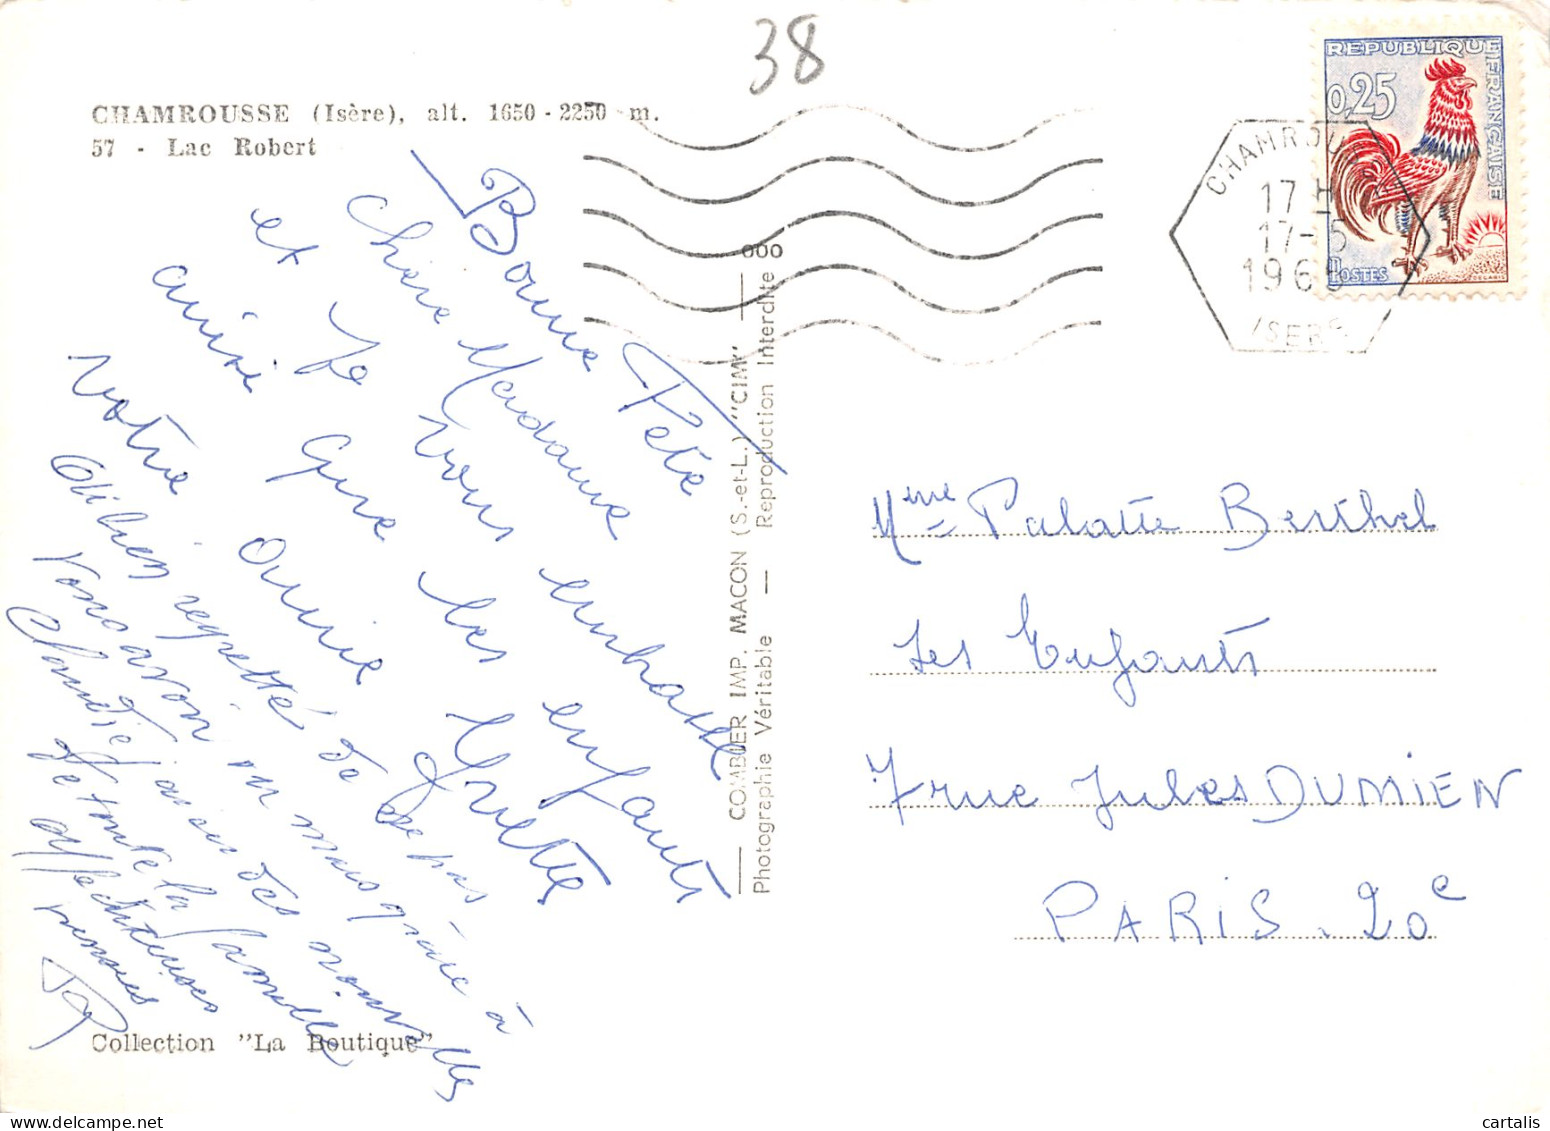 38
CHAMROUSSE (Isère), alt. 1650 - 2250 m.
57 - Lac Robert
REPUBLIQUE FRANÇAISE
0,25
POSTES
CHAMROU
17 H
17-5
196
ISERE
Bonne Fête
Chère Madame
et Je vous embrasse
ainsi que les enfants
votre amie Ginette
Oui bien regretté de ne pas
vous avoir vu mais grâce à
Claudie j'ai eu des nouvelles
de toute la famille
affectueuses
pensées
000
COMBIER IMP. MACON (S.-et-L.) "CIM"
Photographie Véritable — Reproduction Interdite
Mme Palatte Berthel
Les Enfants
7 rue Jules DUMIEN
PARIS. 20e
Collection "La Boutique"
cartalis